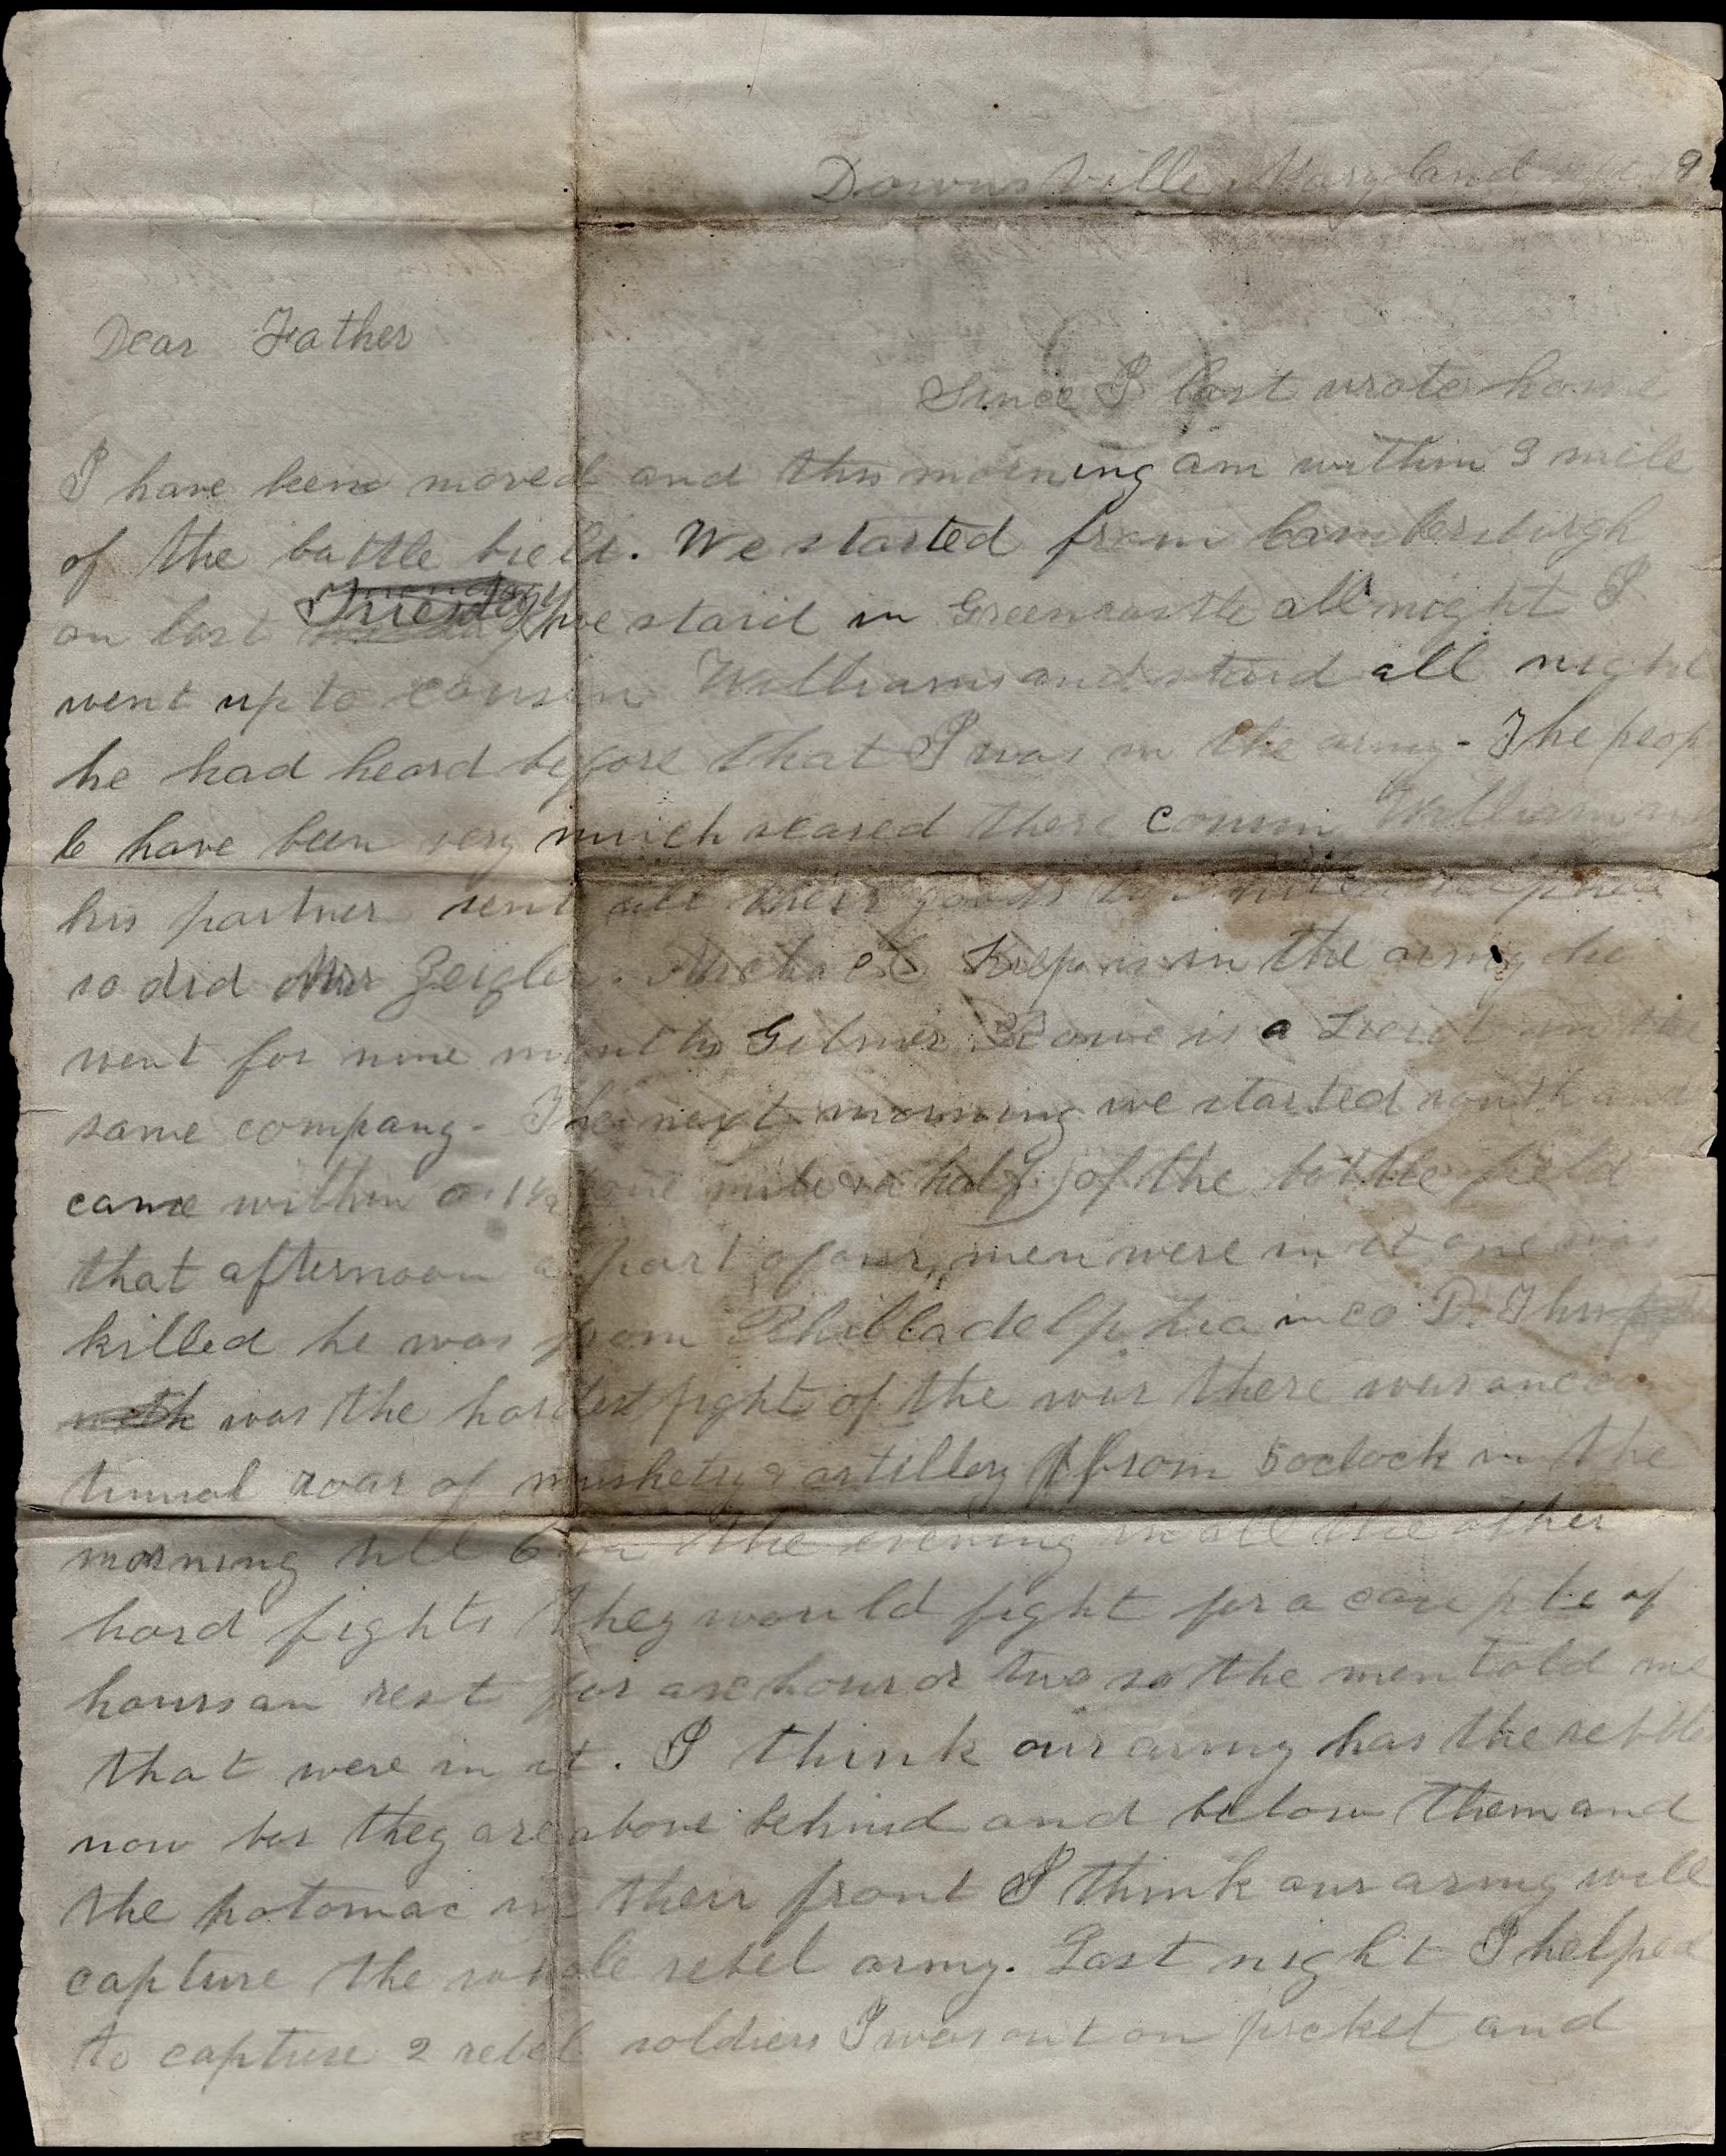 Downsville Maryland 19
Dear Father
Since I last wrote home
I have been moved and this morning am within 3 mile
of the battle field. We started from Cambersburgh
on last Tuesday we staid in Greencastle all night I
went up to cousin Williams and staid all night
he had heard before that I was in the army - The peop
le have been very much scared there cousin William and
his partner sent all their goods to
so did Mr Zeigler. Michael is in the army he
went for nine months Gilmer Rowe is a Lieut in the
same company - The next morning we started south and
came within a 1½ (one mile & a half) of the battle field
that afternoon a part of our men were in it one was
killed he was from Philladelphia in co D. This
was the hardest fight of the war there was one con
tinual roar of musketry & artillery from 5 oclock in the
morning till 6 in the evening in all the other
hard fights they would fight for a couple of
hours an rest for an hour or two so the men told me
that were in it. I think our army has the rebbels
now for they are above behind and below them and
the potomac in their front I think our army will
capture the whole rebel army. Last night I helped
to capture 2 rebel soldiers I was out on picket and